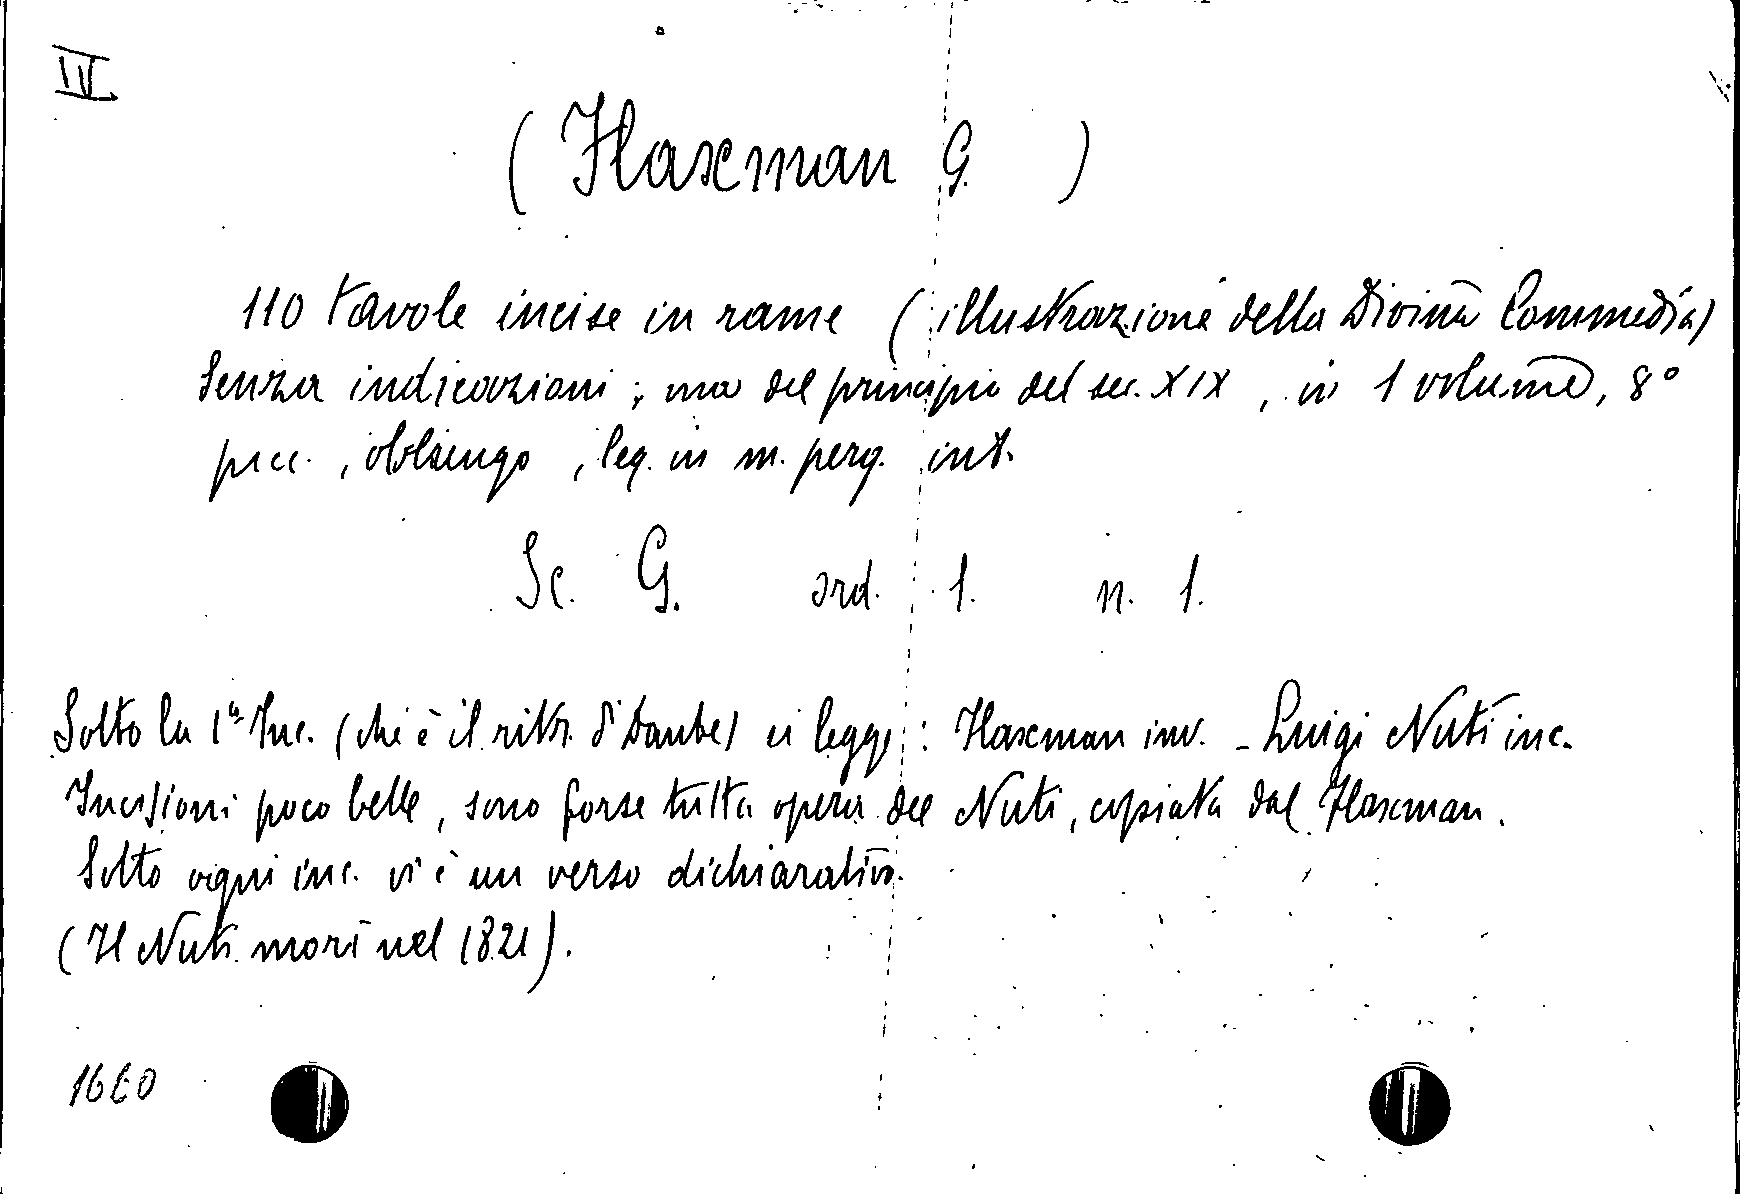 IV
( Flaxman G. )
110 tavole incise in rame (illustrazione della Divina Commedia)
Senza indicazioni; ma del principio del sec. XIX, in 1 volume, 8°
picc., oblungo, leg. in m. perg. int.
Sc. G. ord. 1. n. 1.
Sotto la 1ª Inc. (che è il ritr. di Dante) si legge: Flaxman inv. - Luigi Nuti inc.
Incisioni poco belle, sono forse tutta opera del Nuti, copiata dal Flaxman.
Sotto ogni inc. vi è un verso dichiarativo.
(Il Nuti morì nel 1821).